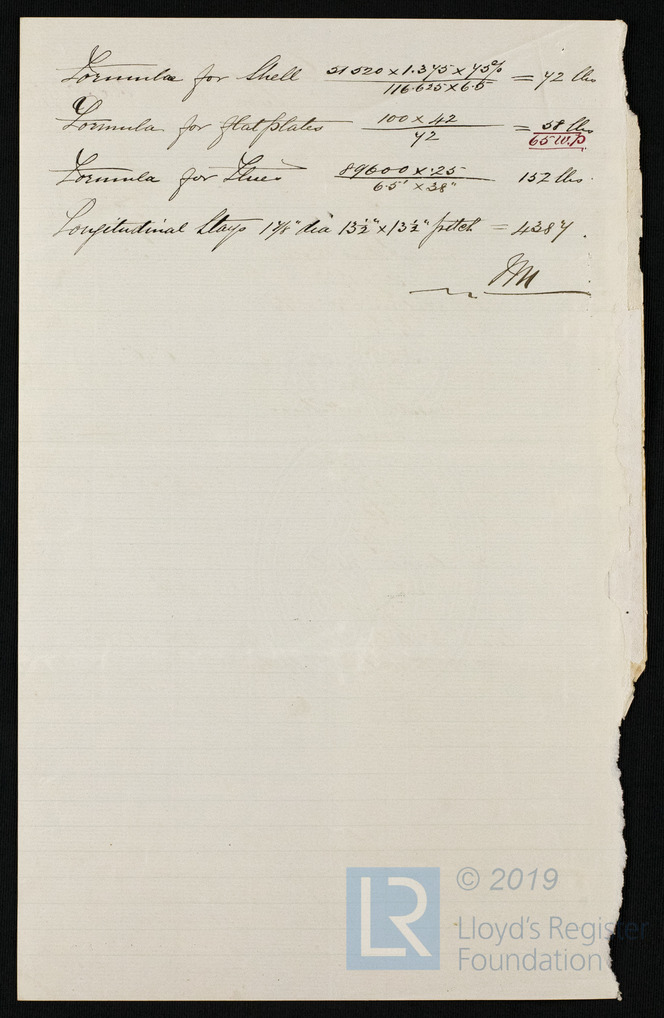 Formula for Shell 51520 × 1.375 × 75% / 116.625 × 6.5 = 72 lbs
Formula for flat plates 100 × 42 / 72 = 58 lbs
65 W.P.
Formula for Flues 89600 × .25 / 6.5' × 38" 152 lbs.
Longitudinal Stays 1⅞" dia 13½" × 13½" pitch = 4387.
JM
LR
© 2019
Lloyd's Register
Foundation